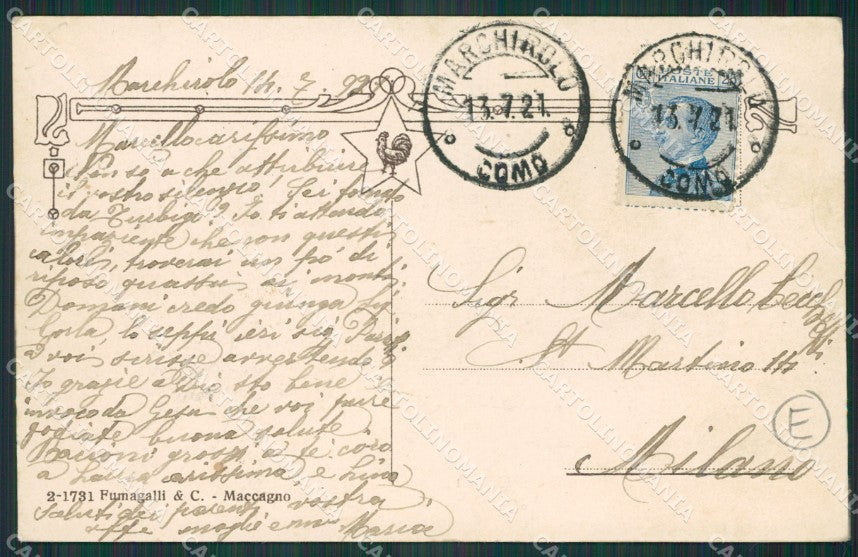 Marchirolo 14. 7. 921
Marcello carissimo
Non so a che attribuire
il vostro silenzio,
da Turbigo? Io ti attendo
impaziente che con questi
calori, troverai un pó di
riposo quassù ai monti.
Domani credo giunga
Carla, lo seppi ieri sia
a voi scrisse avvertendo
Io grazie a Dio sto bene
invoco da Gesù che voi pure
godiate buona salute
Bacioni grossi a te, caro
a Luisa carissima e Lina
2-1731 Fumagalli & C. - Maccagno
Saluti dei parenti vostra
aff. moglie e mamma Maria
MARCHIROLO
13.7.21.
COMO
MARCHIROLO
13.7.21.
COMO
POSTE
ITALIANE
Sigr Marcello
St Martino 14
Milano
E
CARTOLINOMANIA